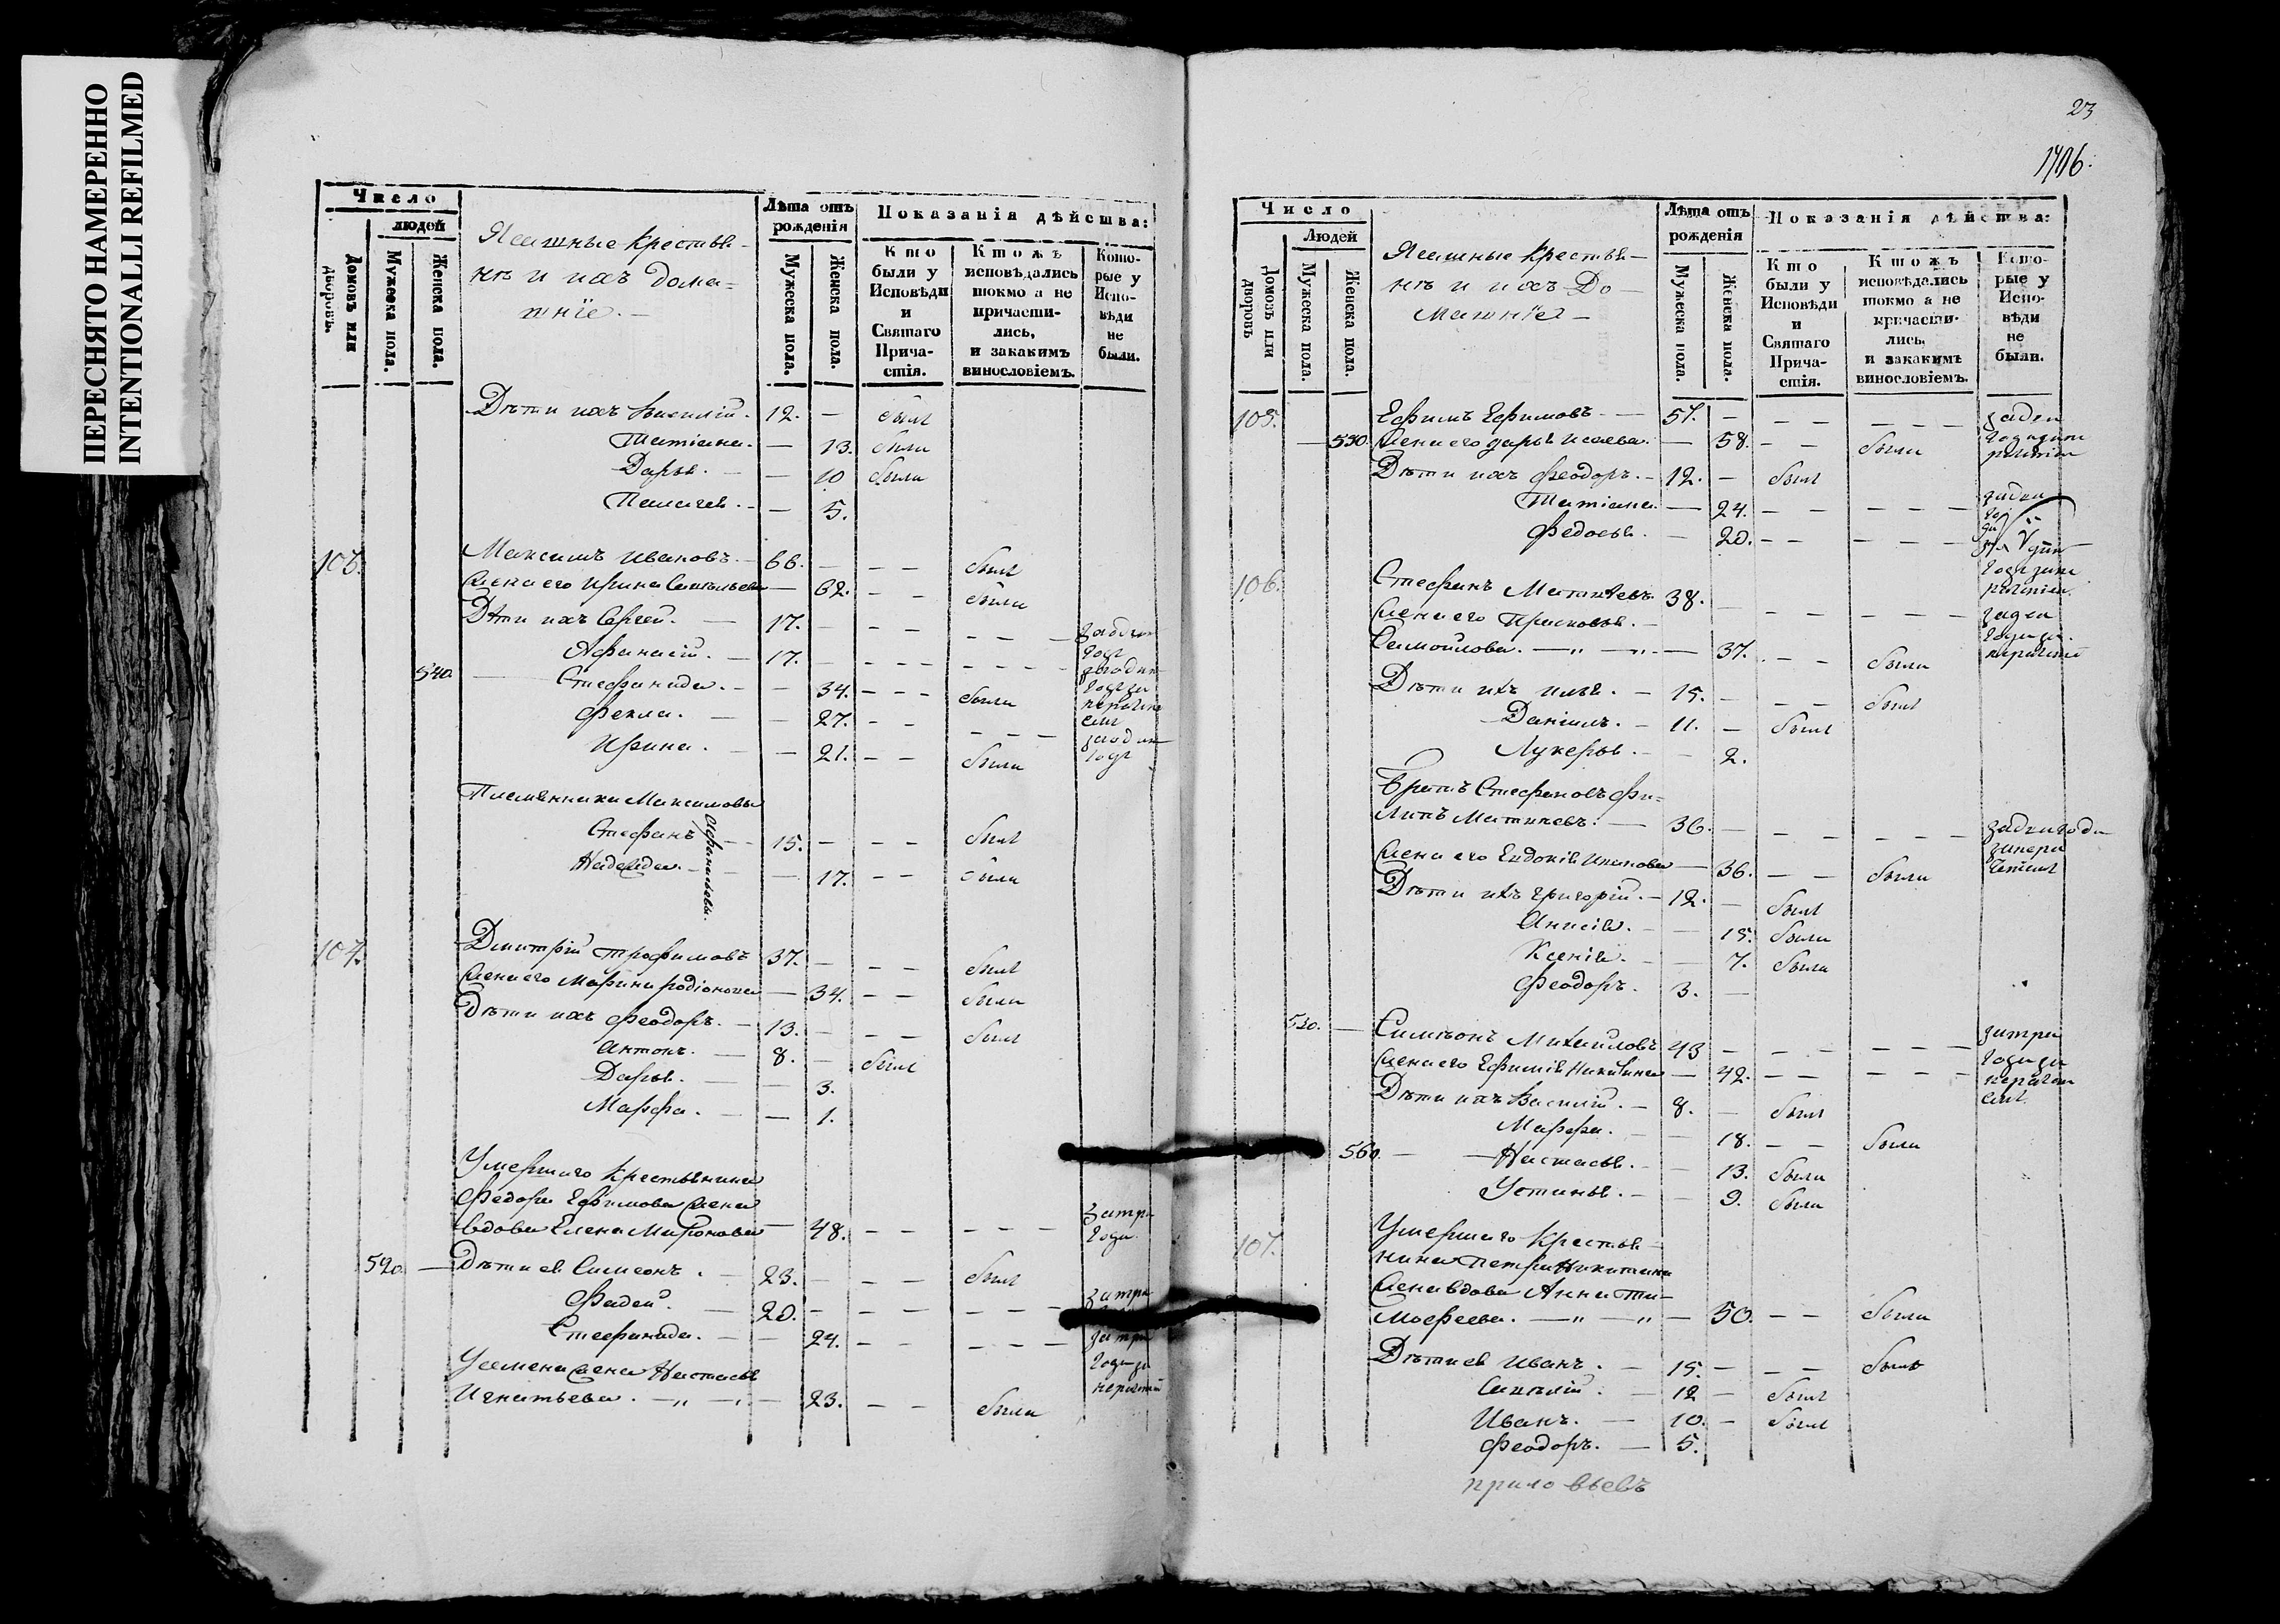 ПЕРЕСНЯТО НАМЕРЕННО
INTENTIONALLI REFILMED
Число
людей
Домовъ или дворовъ.
Мужеска пола.
Женска пола.
Ясашные крестья-
не и ихъ дома-
шніе. —
Лѣта отъ рожденія
Мужеска пола.
Женска пола.
Показанія дѣйства:
Кто были у Исповѣди и Святаго Прича-стія.
Ктожъ исповѣдались токмо а не причасти-лись, и закакимъ винословіемъ.
Кото-рые у Испо-вѣди не были.
Дѣти ихъ Василій. 12. — былъ
Татіана. — 13. были
Дарья. — 10 были
Пелагея. — 5.
Максимъ Ивановъ. 66. — — — былъ
Жена его Ирина Савельева — 62. — — были
Дѣти ихъ Сергей. — 17. — — — — — —
Афанасій. — 17. — — — — — — —
540 — Стефанида. — — 34. — — — были
Фекла. — — 27. — — — — —
Ирина. — — 21. — — были
Племянники Максимовы
Стефанъ — 15. — — — былъ
Надежда. — — 17. — — были
107. Дмитрій Трофимовъ 37. — — — былъ
Жена его Марина Родіонова — 34. — — были
Дѣти ихъ Феодоръ. — 13. — — — былъ
Антонъ. — 8. — былъ
Дарья. — — 3.
Марфа. — — 1.
Умершаго крестьянина
Федора Ефимова жена
вдова Елена Миронова — 48. — — — — — затри года
520 — Дѣти ея Симеонъ. — 23. — — — былъ
Фадей. — 20. — — — — — — затри
Стефанида. — — 24. — — — — — затри
Усемена жена Настасья
Игнатьева. —„ —„ — 23. — — были
23
Число
Людей
Домовъ или дворовъ
Мужеска пола.
Женска пола.
Ясашные крестья—
не и ихъ До—
машніе —
Лѣта отъ рожденія
Мужеска пола.
Женска пола.
Показанія дѣйства:
Кто были у Исповѣди и Святаго Прича-стія.
Ктожъ исповѣдались токмо а не причасти-лись, и закакимъ винословіемъ.
Кото-рые у Испо-вѣди не были.
105. Ефимъ Ефимовъ — 57. — — — — — —
— 550. Жена его Дарья Исаева. — 58. — — были
Дѣти ихъ Феодоръ. — 12. — былъ
Татіана. — 24. — — — — —
Федосья. — 20. — — — — —
106. Стефанъ Матвѣевъ 38. — — — — — —
Жена его Прасковья. —
Самойлова. —„ —„ — 37. — — были
Дѣти ихъ Илья. — 15. — — — былъ
Даніилъ. — 11. — былъ
Лукерья. — — 2.
Братъ Стефановъ Фи=
липъ Матвѣевъ. — 36. — — — — — —
Жена его Евдокія — 36. — — были
Дѣти ихъ Григорій. — 12. — былъ
Анисія. — — 15. были
Ксенія. — — 7. были
Феодоръ. 3. —
530. — Симеонъ Михайловъ 43 — — — — — —
Жена его Ефимія Никитина — 42. — — — — —
Дѣти ихъ Василій. — 8. — былъ
Марфа. — — 18. — — были
560. — Настасья. — — 13. были
Устинья. — — 9. были
107. Умершаго крестья—
нина Петра Никитина
жена вдова Анна Ти-
мофеева. —„ —„ — 50. — — были
Дѣти ея Иванъ. — 15. — — — былъ
Савелій. — 12 — былъ
Иванъ. — 10. — былъ
Феодоръ. — 5.